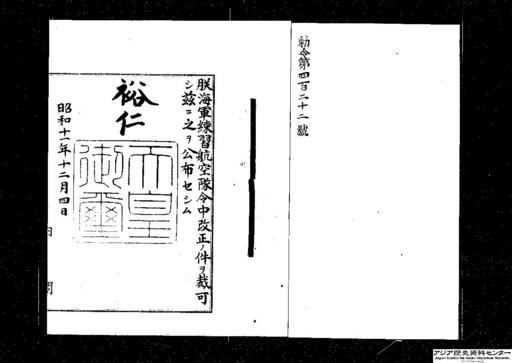 勅令第四百二十二號
朕海軍練習航空隊令中改正ノ件ヲ裁可
シ茲ニ之ヲ公布セシム
裕仁
天皇
御璽
昭和十一年十二月四日
内閣
アジア歴史資料センター
Japan Center for Asian Historical Records